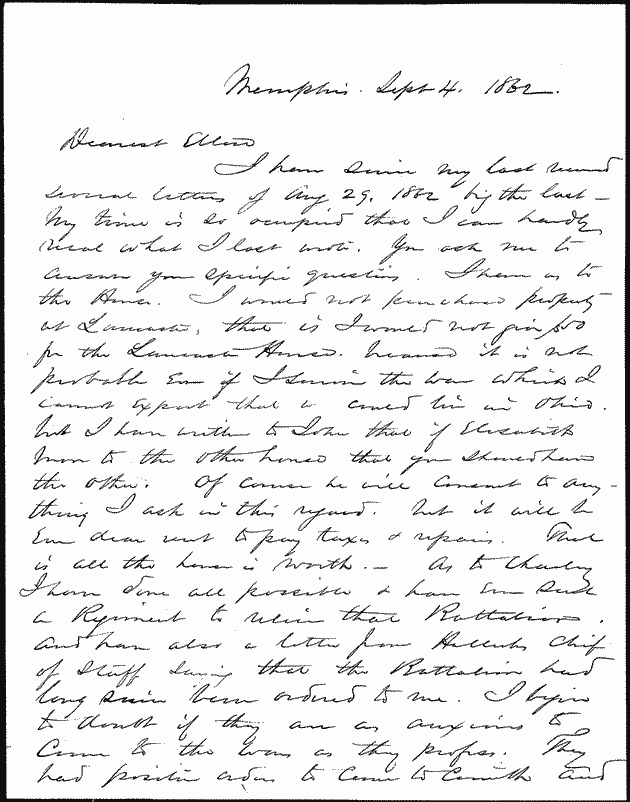 Memphis. Sept 4. 1862.
Dearest Ellen
I have since my last received
several letters of Aug 29. 1862 being the last —
My time is so occupied that I can hardly
recal what I last wrote. You ask me to
answer your specific questions. Then as to
the House. I would not purchase property
at Lancaster, that is I would not give
for the Lancaster House. because it is not
probable Even if I survive the war which I
cannot Expect that we could live in Ohio.
but I have written to John that if Elizabeth
move to the other house that you should have
the other. Of course he will consent to any-
thing I ask in this regard. but it will be
Even dear rent to pay taxes & repairs. That
is all the house is worth. — As to Charley
I have done all possible & have Even sent
a Regiment to relieve that Battalion.
and have also a letter from Hallecks Chief
of Staff saying that the Battalion had
long since been ordered to me. I begin
to doubt if they are as anxious to
Come to the wars as they profess. They
had positive orders to Come to Corinth and